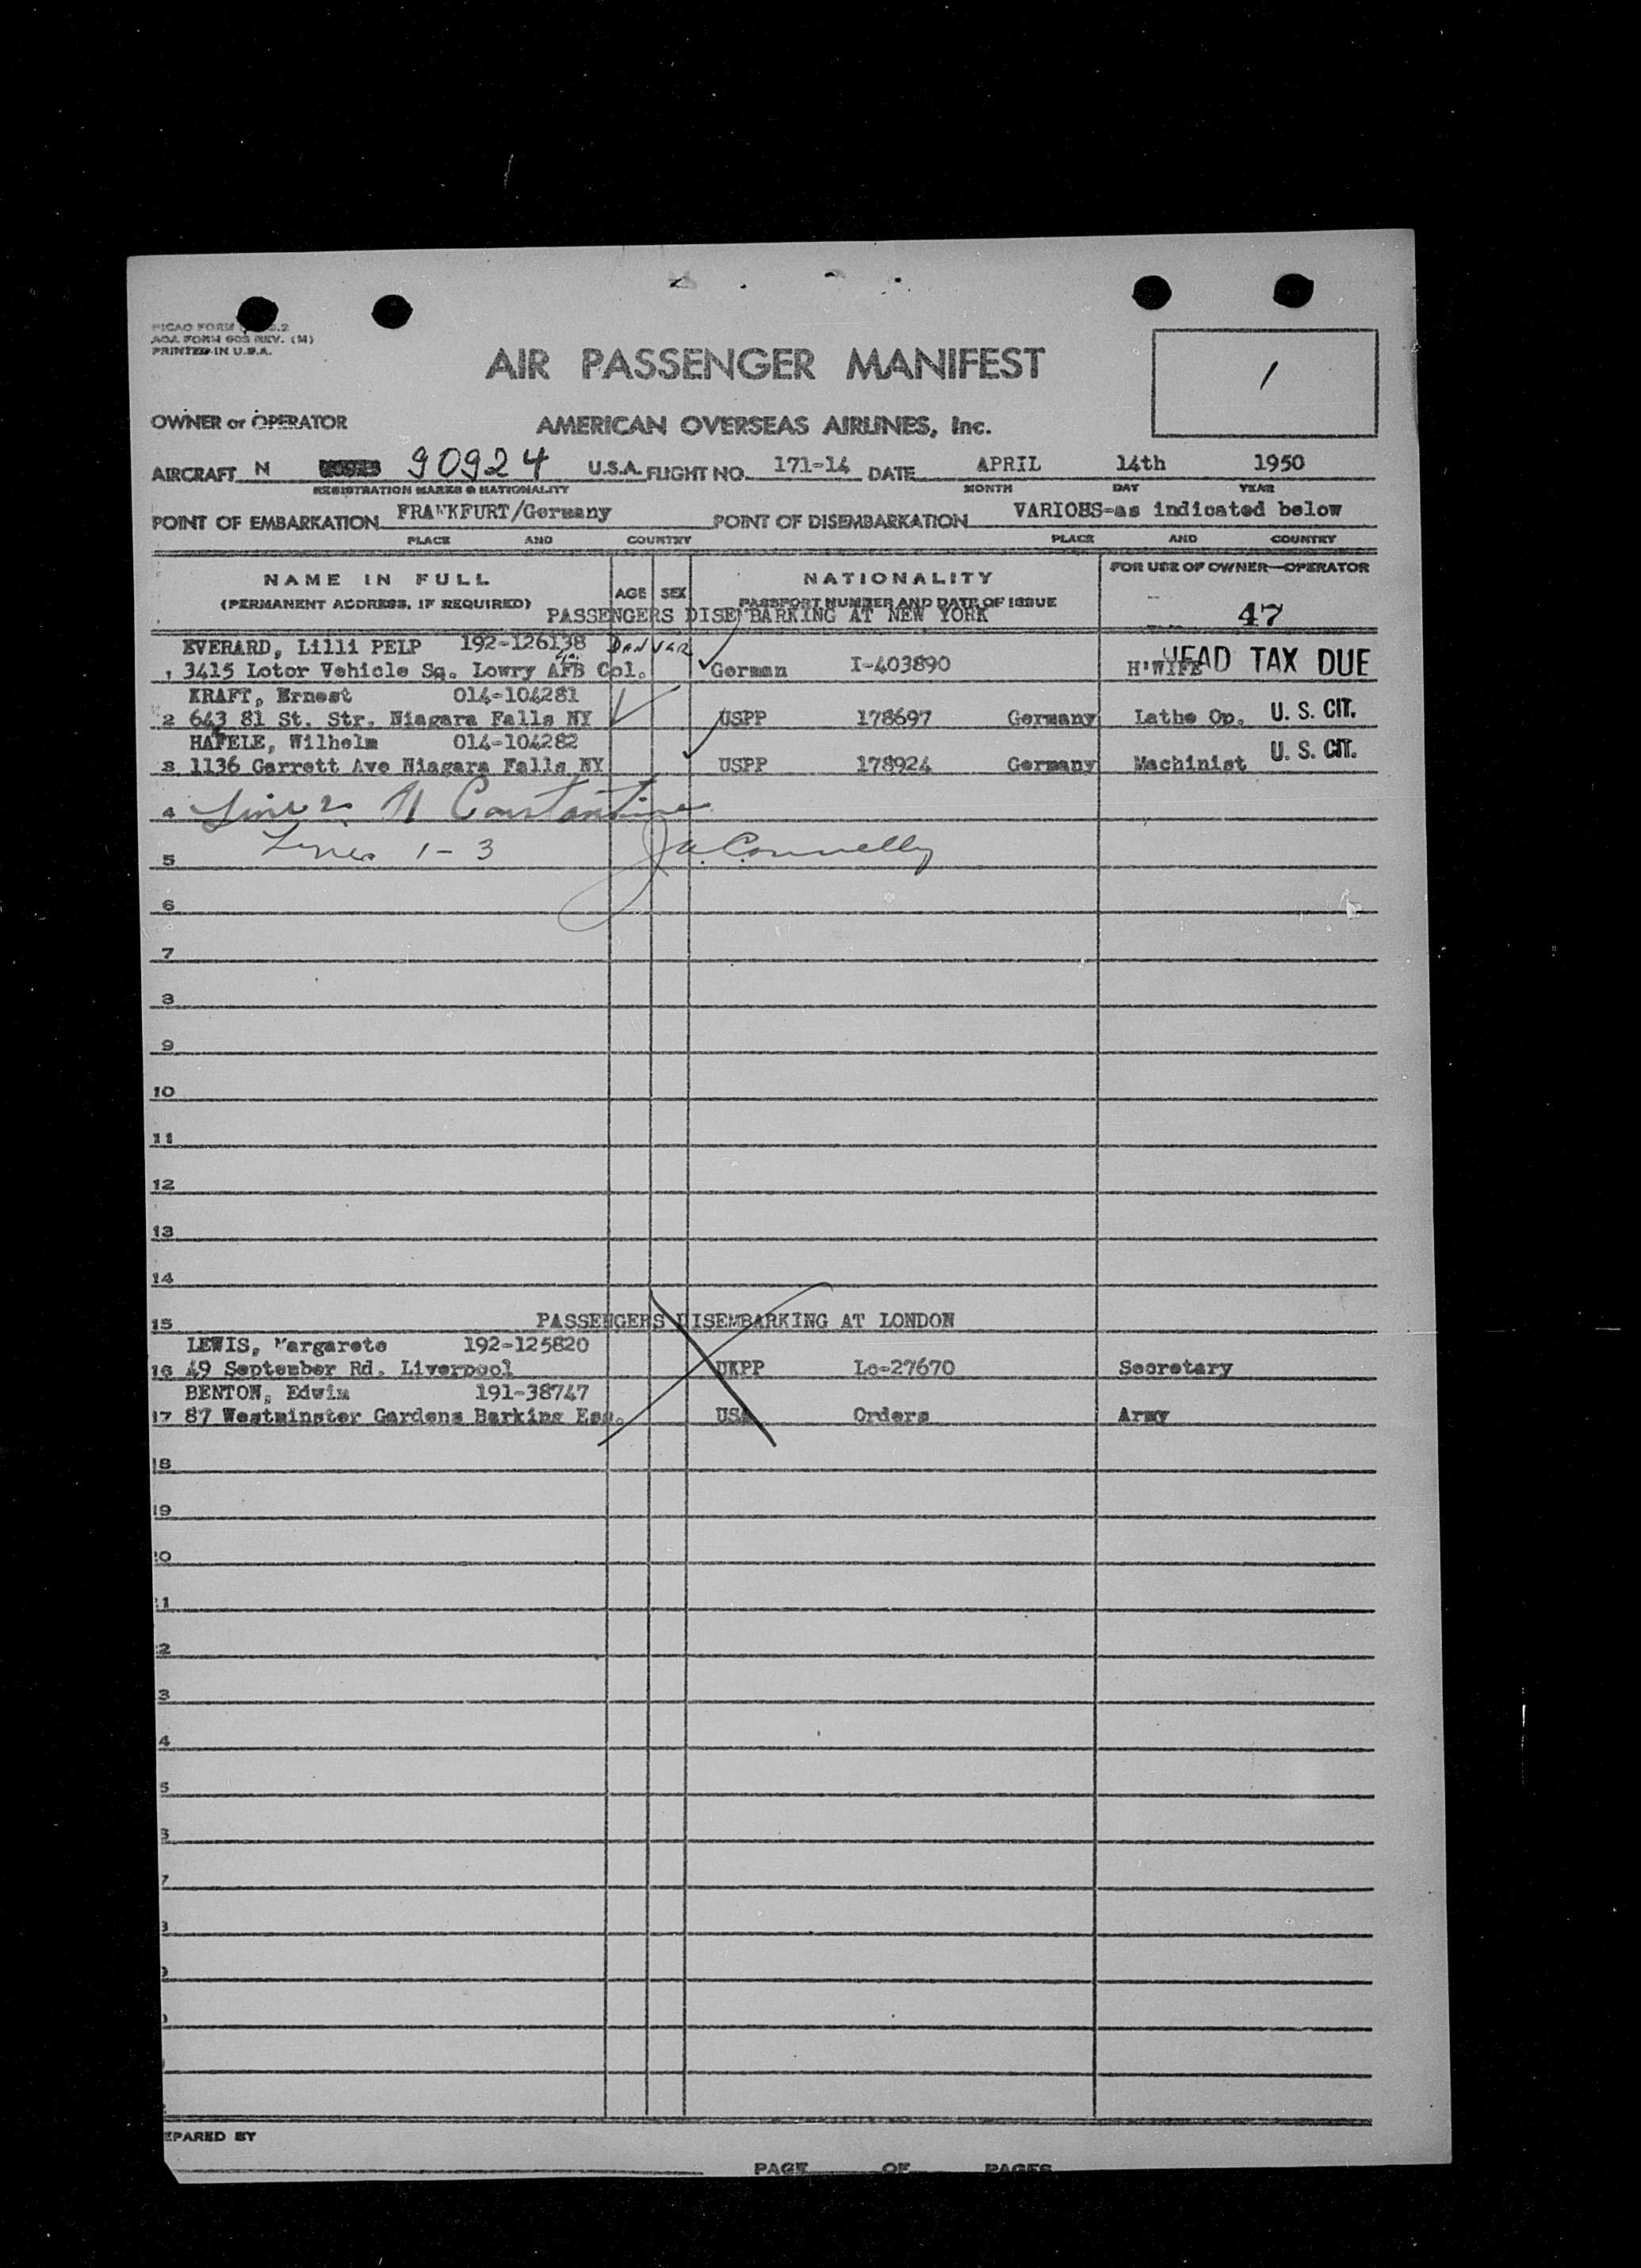 AOA FORM 603 REV. (M)
PRINTED IN U.S.A.
AIR PASSENGER MANIFEST
1
OWNER or OPERATOR AMERICAN OVERSEAS AIRLINES, Inc.
AIRCRAFT N 90924 U.S.A. FLIGHT NO. 171-14 DATE APRIL 14th 1950
REGISTRATION MARKS & NATIONALITY MONTH DAY YEAR
POINT OF EMBARKATION FRANKFURT/Germany POINT OF DISEMBARKATION VARIOHS-as indicated below
PLACE AND COUNTRY PLACE AND COUNTRY
NAME IN FULL AGE SEX NATIONALITY FOR USE OF OWNER—OPERATOR
(PERMANENT ADDRESS, IF REQUIRED) PASSPORT NUMBER AND DATE OF ISSUE
PASSENGERS DISEMBARKING AT NEW YORK 47
EVERARD, Lilli PELP 192-126138 DANVER
1 3415 Lotor Vehicle Sq. Lowry AFB Col. German I-403890 H'WIFE HEAD TAX DUE
KRAFT, Ernest 014-104281
2 643 81 St. Str. Niagara Falls NY USPP 178697 Germany Lathe Op. U. S. CIT.
HAFELE, Wilhelm 014-104282
3 1136 Garrett Ave Niagara Falls NY USPP 178924 Germany Machinist U. S. CIT.
4 Line 2 Constantine
5 Lines 1-3 J.A. Connelly
6
7
8
9
10
11
12
13
14
15 PASSENGERS DISEMBARKING AT LONDON
LEWIS, Margarete 192-125820
16 49 September Rd. Liverpool UKPP Lo-27670 Secretary
BENTON, Edwin 191-38747
17 87 Westminster Gardens Barking Ess. USA Orders Army
18
19
20
21
2
3
4
5
6
7
8
EPARED BY
PAGE OF PAGES